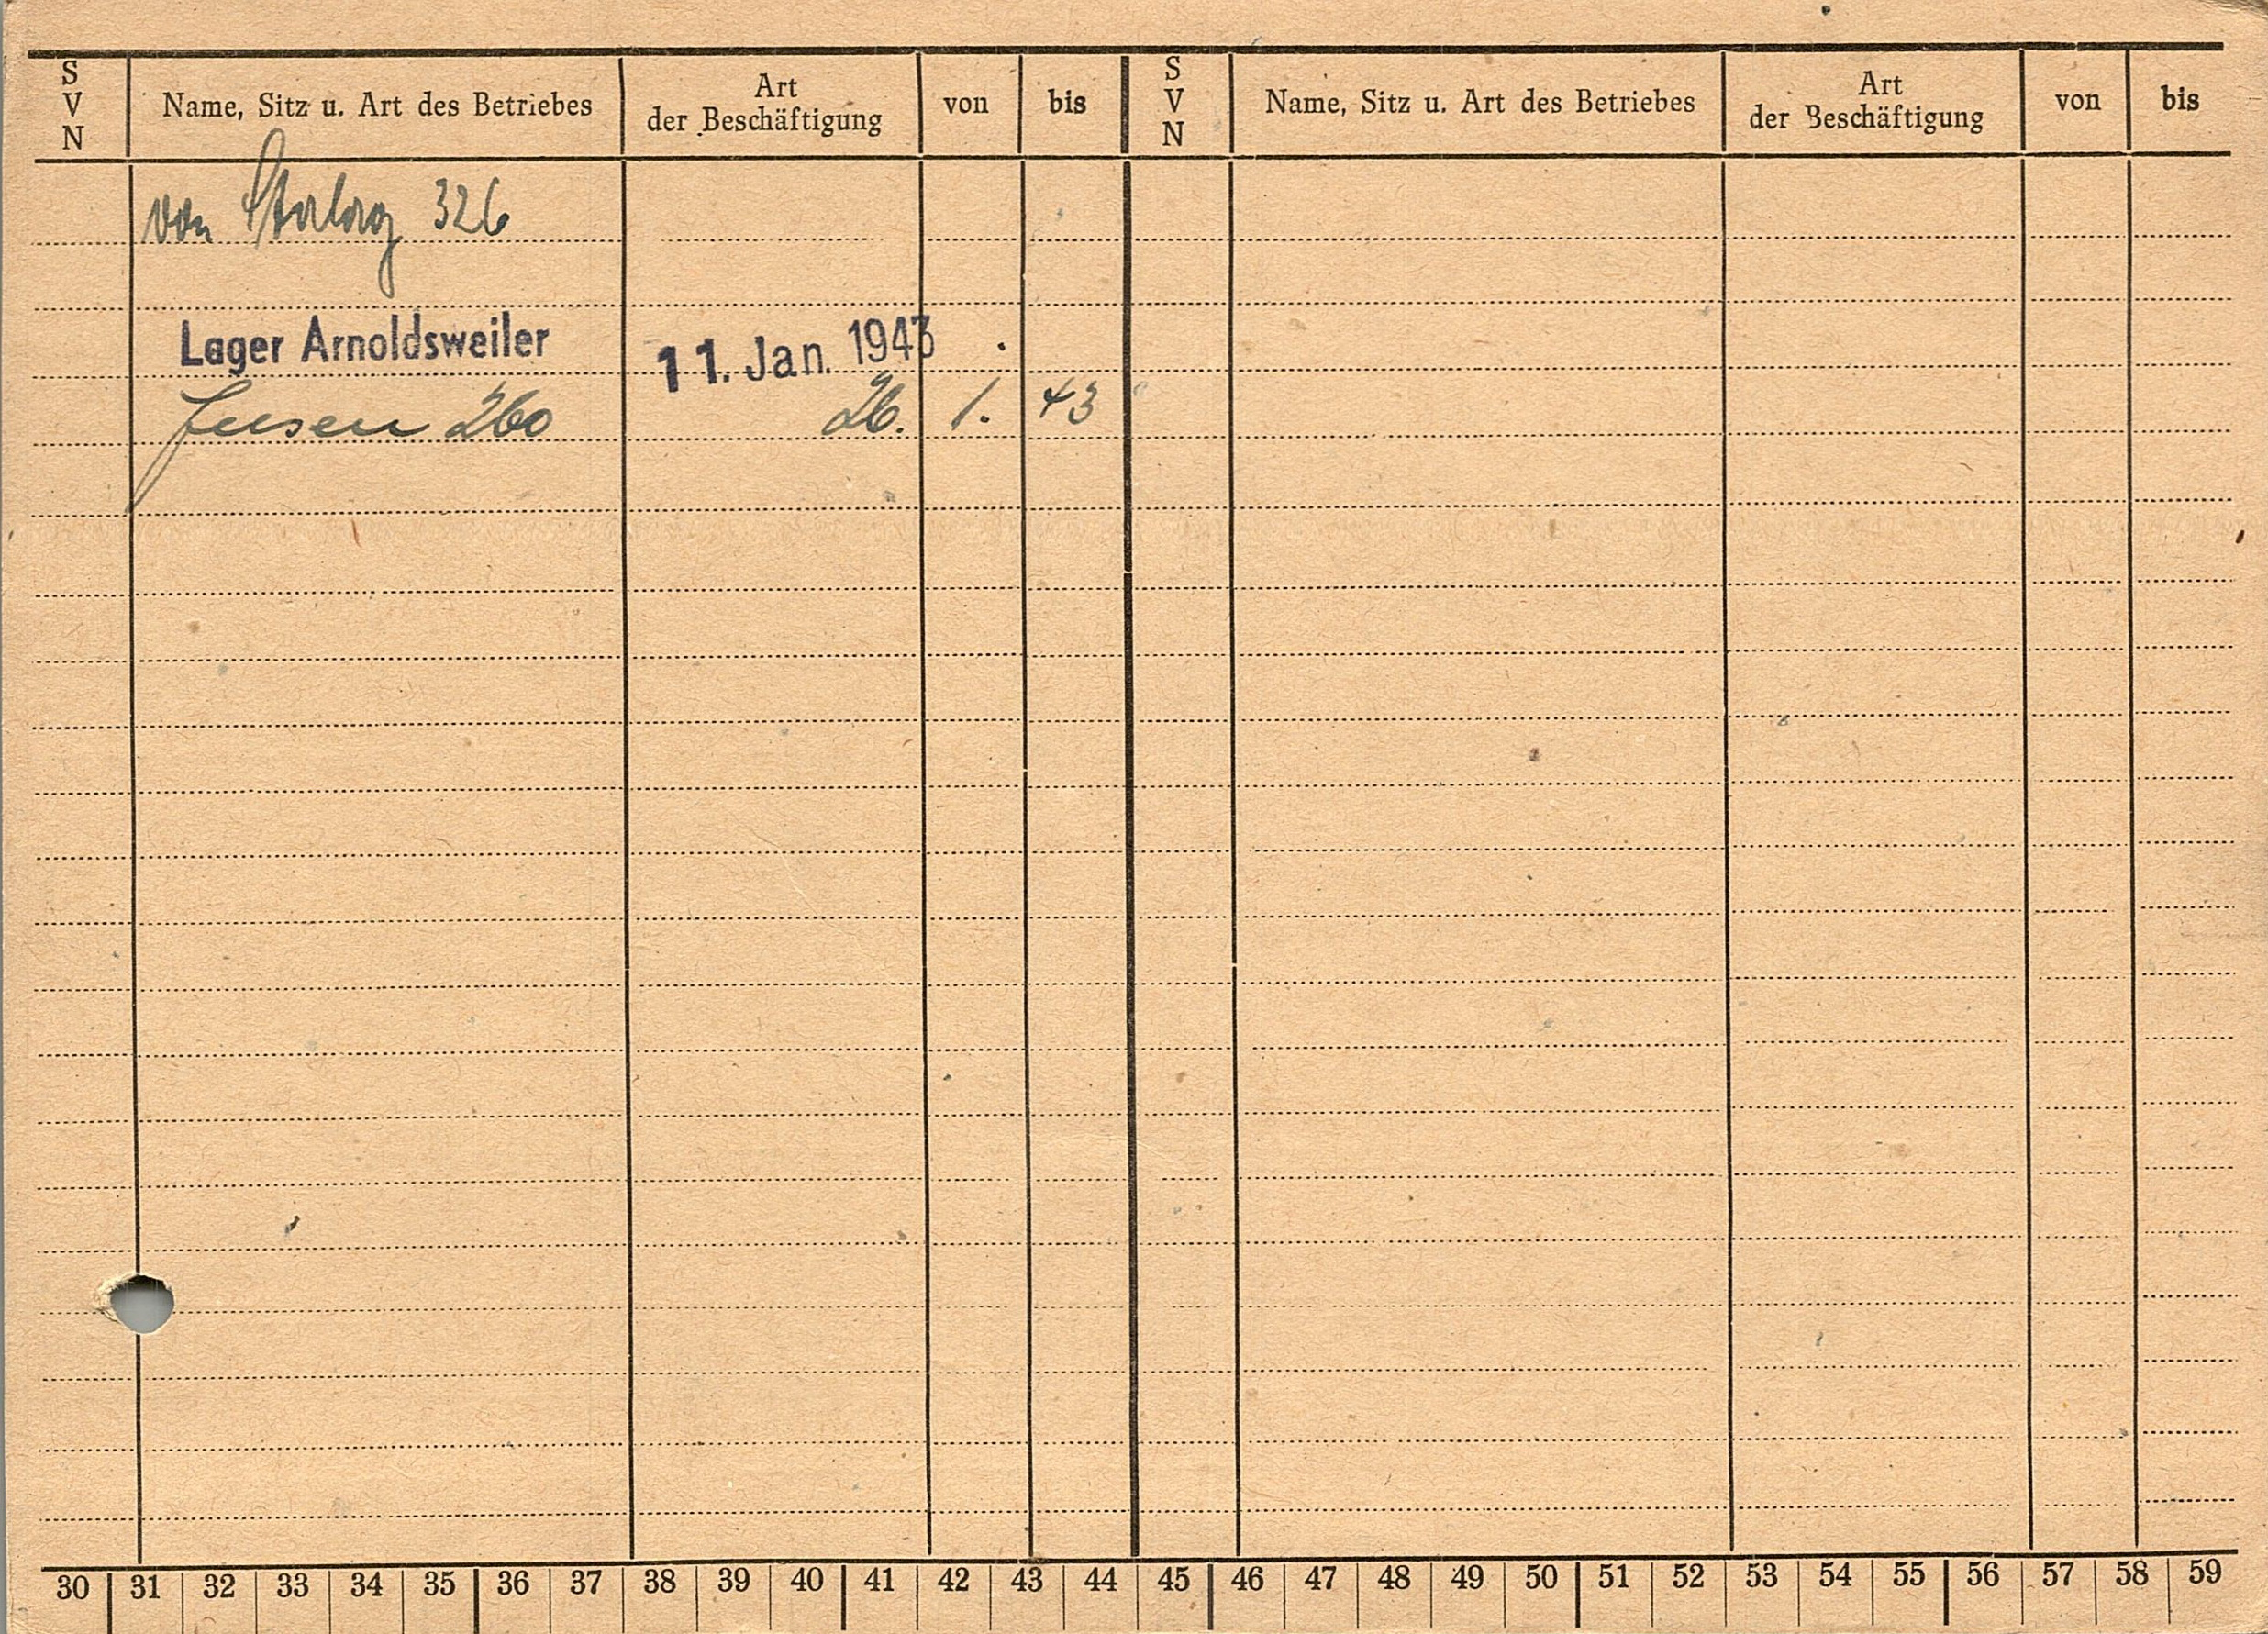 S V N Name, Sitz u. Art des Betriebes Art der Beschäftigung von bis S V N Name, Sitz u. Art des Betriebes Art der Beschäftigung von bis
von Stalag 326
Lager Arnoldsweiler 11. Jan. 1943
260 26. 1. 43
30 31 32 33 34 35 36 37 38 39 40 41 42 43 44 45 46 47 48 49 50 51 52 53 54 55 56 57 58 59